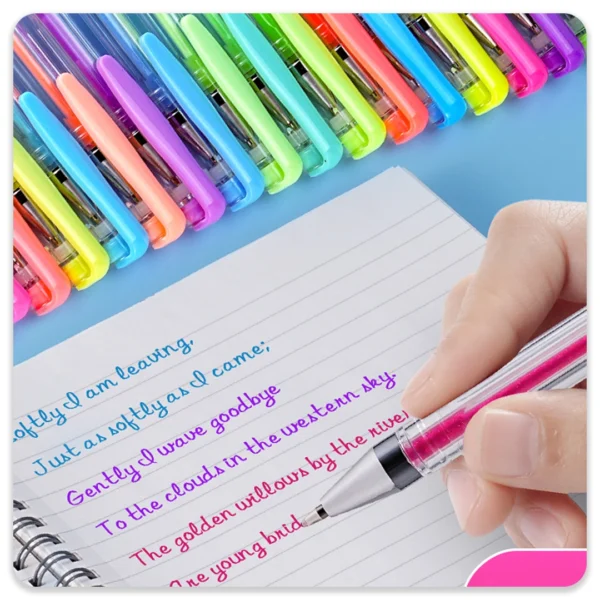 softly I am leaving,
Just as softly as I came;
Gently I wave goodbye
To the clouds in the western sky.
The golden willows by the river
Are young brid